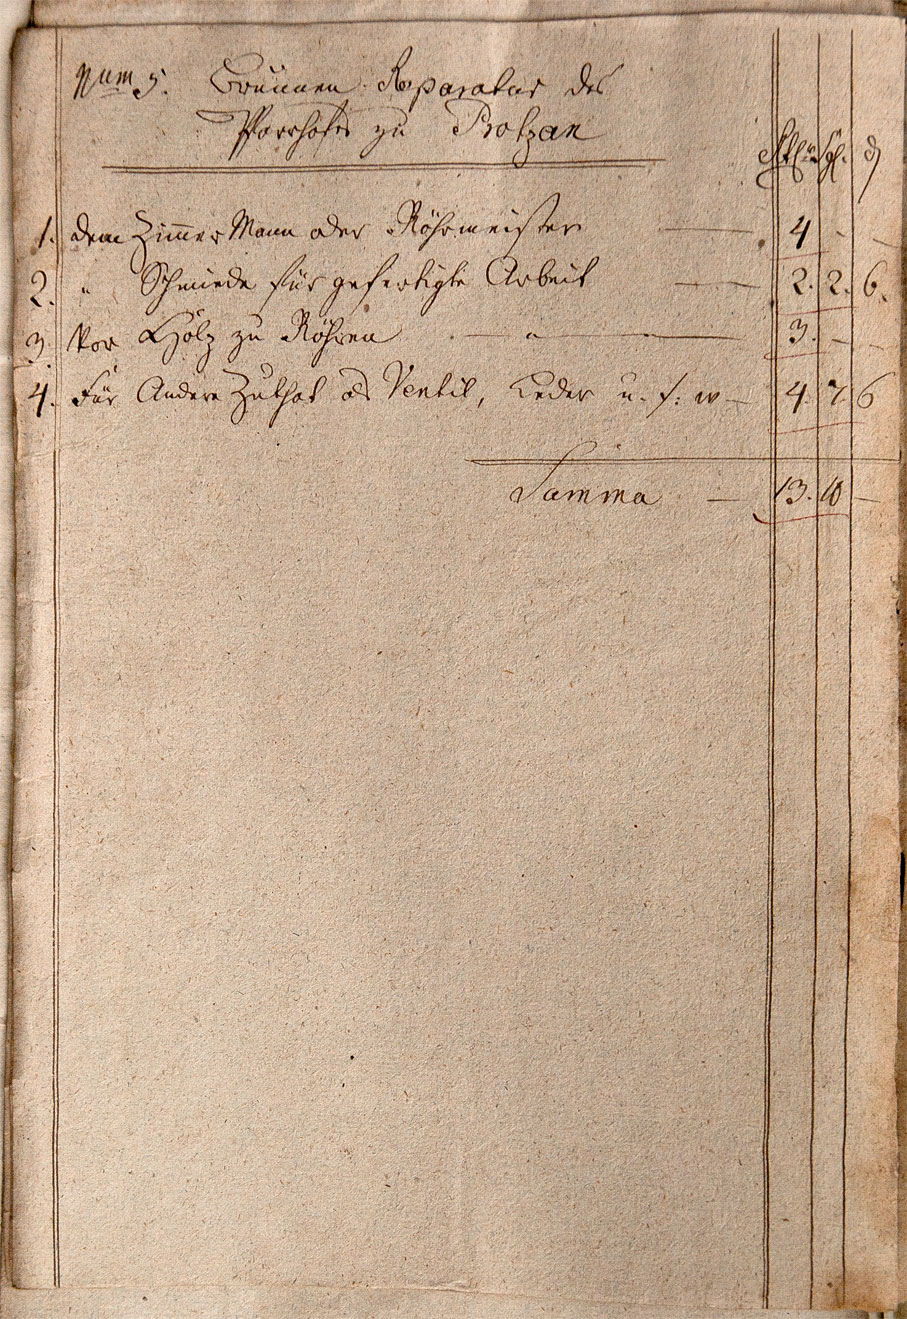 Num 5. Brunnen Reparatur des
Pfarrhofes zu Botzan
Rtl. Sgl. d
1. dem Zimmer Mann oder Röhrmeister — 4 - -
2. " Schmiede für gefertigte Arbeit — 2. 2. 6.
3. Vor Holz zu Röhren — " — 3. - -
4. Für Andere Zuthat als Ventil, Leder u. s: w — 4. 7. 6
Summa — 13. 10 —